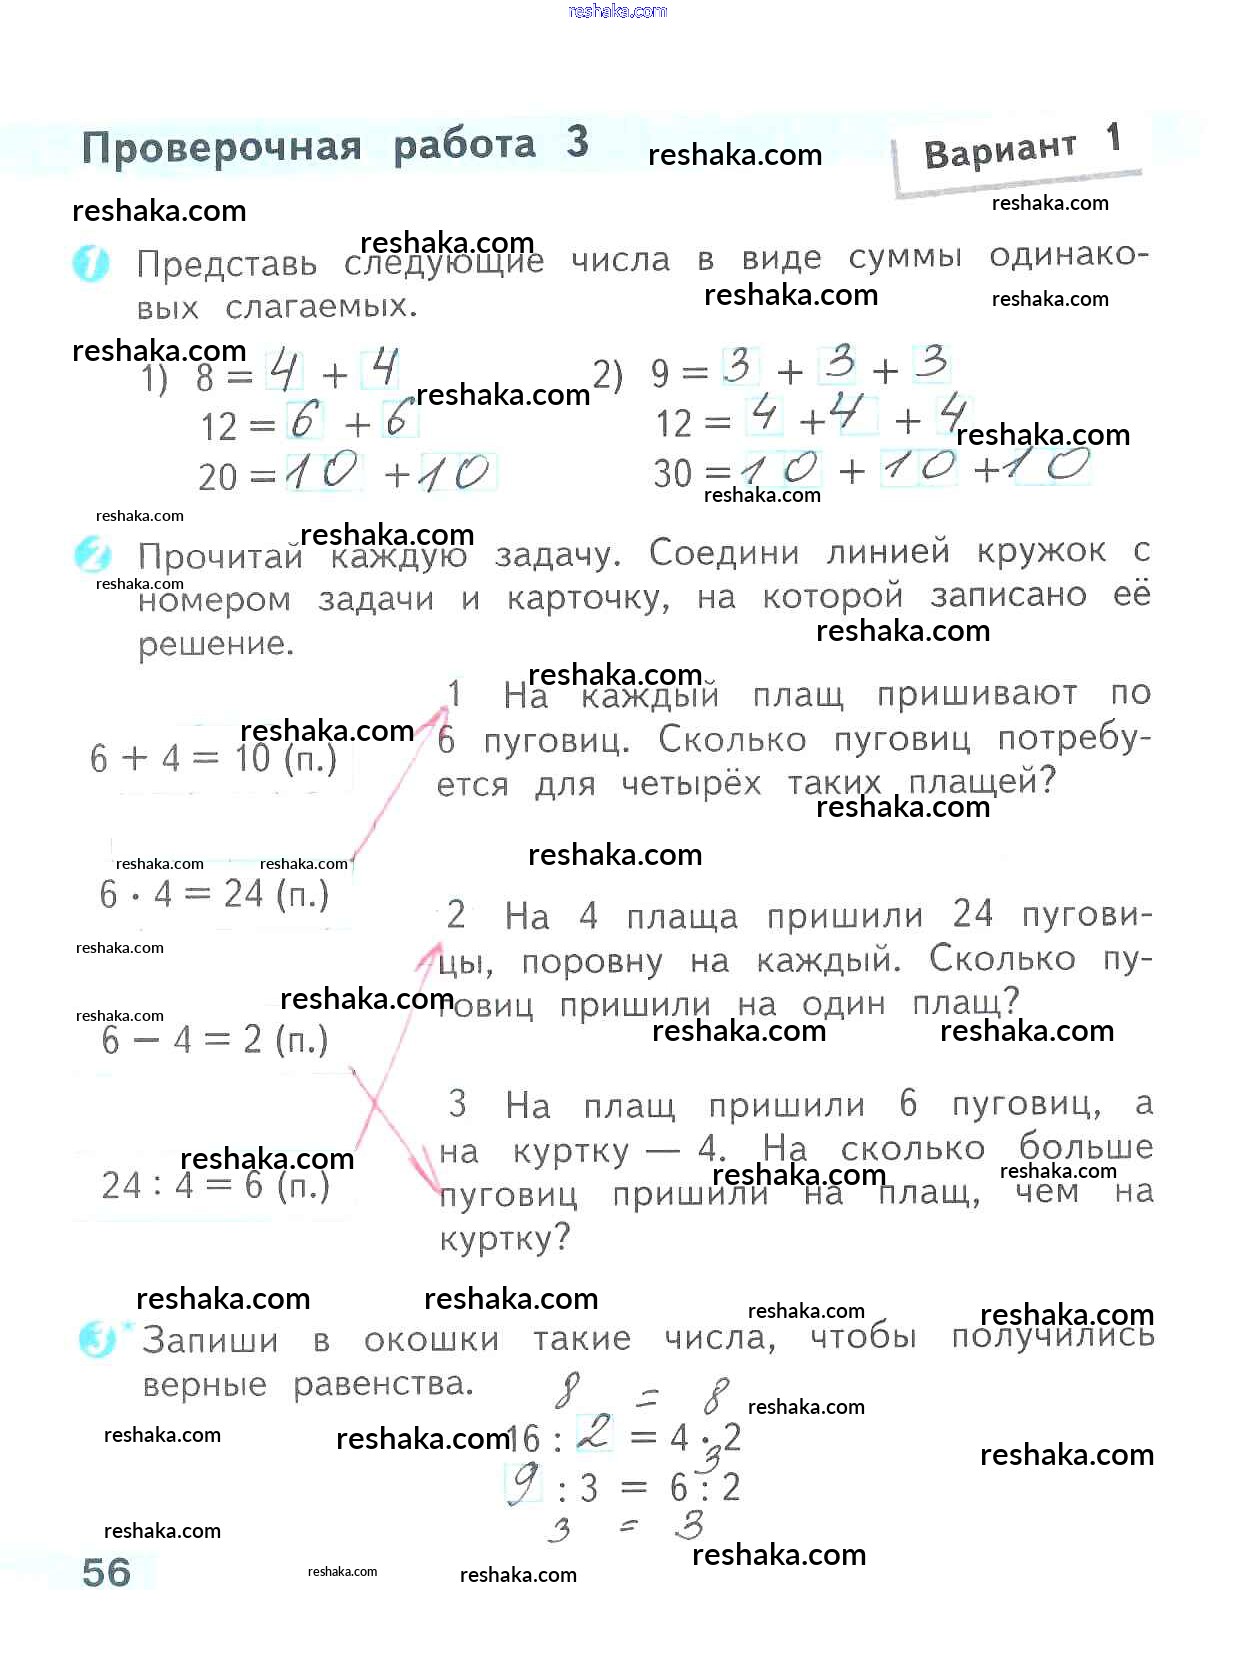 reshaka.com
Проверочная работа 3 reshaka.com Вариант 1
reshaka.com reshaka.com
reshaka.com
1 Представь следующие числа в виде суммы одинако-
reshaka.com reshaka.com
вых слагаемых.
reshaka.com
1) 8 = 4 + 4 2) 9 = 3 + 3 + 3
reshaka.com
12 = 6 + 6 12 = 4 + 4 + 4
reshaka.com
20 = 10 + 10 30 = 10 + 10 + 10
reshaka.com
reshaka.com reshaka.com
2 Прочитай каждую задачу. Соедини линией кружок с
reshaka.com
номером задачи и карточку, на которой записано её
reshaka.com
решение.
reshaka.com
1 На каждый плащ пришивают по
reshaka.com
6 пуговиц. Сколько пуговиц потребу-
6 + 4 = 10 (п.)
ется для четырёх таких плащей?
reshaka.com
reshaka.com
reshaka.com reshaka.com
6 · 4 = 24 (п.)
2 На 4 плаща пришили 24 пугови-
reshaka.com
цы, поровну на каждый. Сколько пу-
reshaka.com
говиц пришили на один плащ?
reshaka.com reshaka.com reshaka.com
6 − 4 = 2 (п.)
3 На плащ пришили 6 пуговиц, а
на куртку — 4. На сколько больше
reshaka.com reshaka.com reshaka.com
24 : 4 = 6 (п.)
пуговиц пришили на плащ, чем на
куртку?
reshaka.com reshaka.com reshaka.com reshaka.com
3* Запиши в окошки такие числа, чтобы получились
верные равенства.
8 = 8 reshaka.com
reshaka.com reshaka.com 16 : 2 = 4 · 2 reshaka.com
3
9 : 3 = 6 : 2
3 = 3
reshaka.com reshaka.com
56 reshaka.com reshaka.com